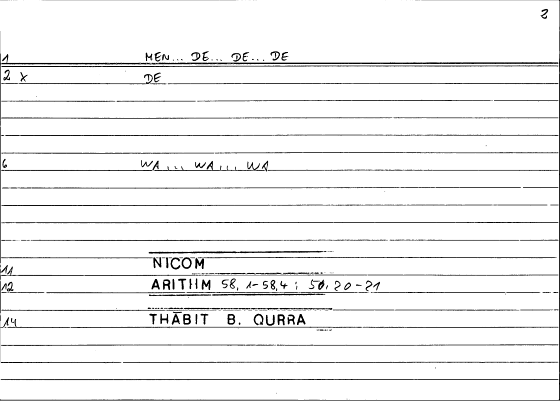 2
1 MEN... DE... DE... DE
2 x DE
6 WA... WA... WA
11 NICOM
12 ARITHM 58, 1-58,4 ; 50, 20-21
14 THĀBIT B. QURRA